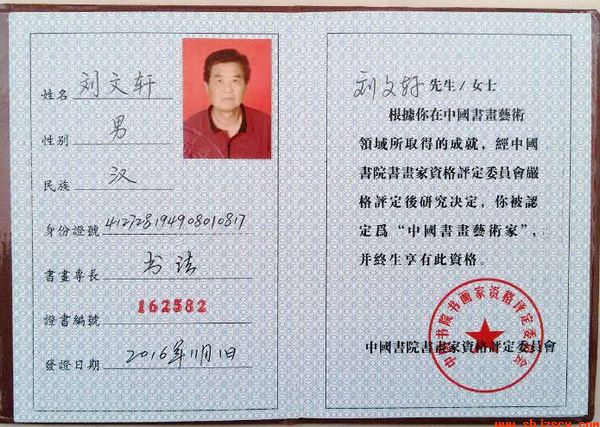 姓名 刘文轩
性别 男
民族 汉
身份證號 412728194908010817
書畫專長 书法
證書編號 162582
發證日期 2016年11月1日
刘文轩 先生/女士
根據你在中國書畫藝術
領域所取得的成就，經中國
書院書畫家資格評定委員會嚴
格評定後研究决定，你被認
定爲“中國書畫藝術家”，
并終生享有此資格。
中国书院书画家资格评定委员会
中國書院書畫家資格評定委員會